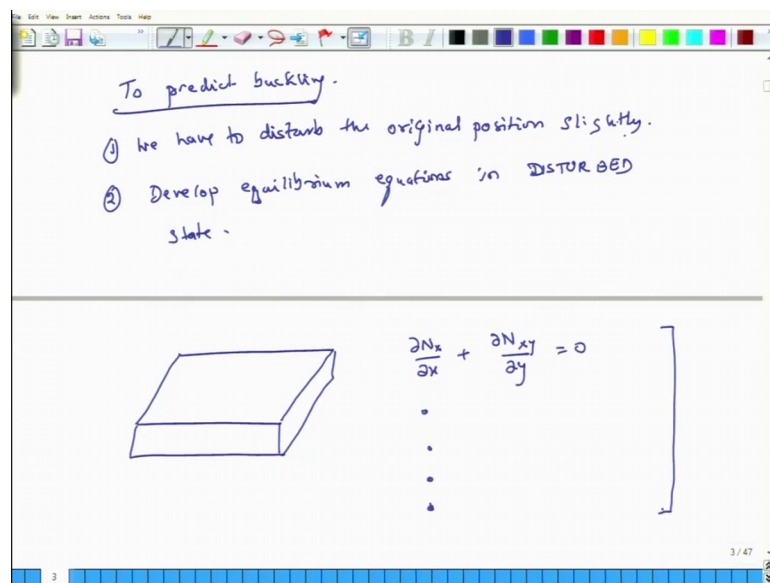 File Edit View Insert Actions Tools Help
To predict buckling.
① We have to disturb the original position slightly.
② Develop equilibrium equations in DISTURBED
state.
∂Nx/∂x + ∂Nxy/∂y = 0
3/47
3